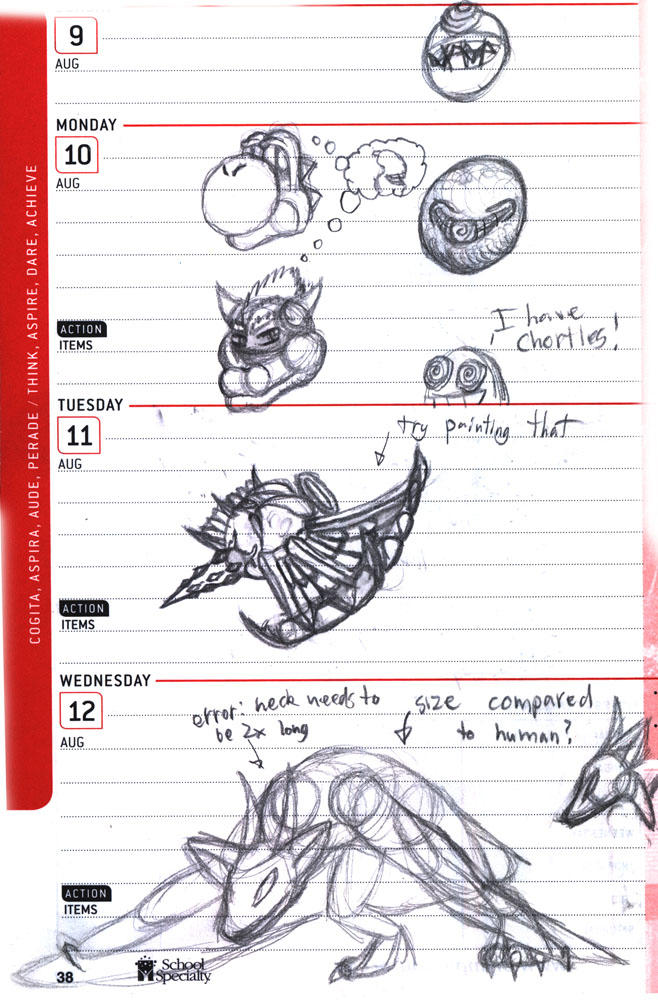 9
AUG
MONDAY
10
AUG
ACTION
ITEMS
I have
chortles!
TUESDAY
11
AUG
try painting that
ACTION
ITEMS
WEDNESDAY
12
AUG
error: neck needs to
be 2x long
size compared
to human?
ACTION
ITEMS
38
School
Specialty
COGITA, ASPIRA, AUDE, PERADE / THINK, ASPIRE, DARE, ACHIEVE